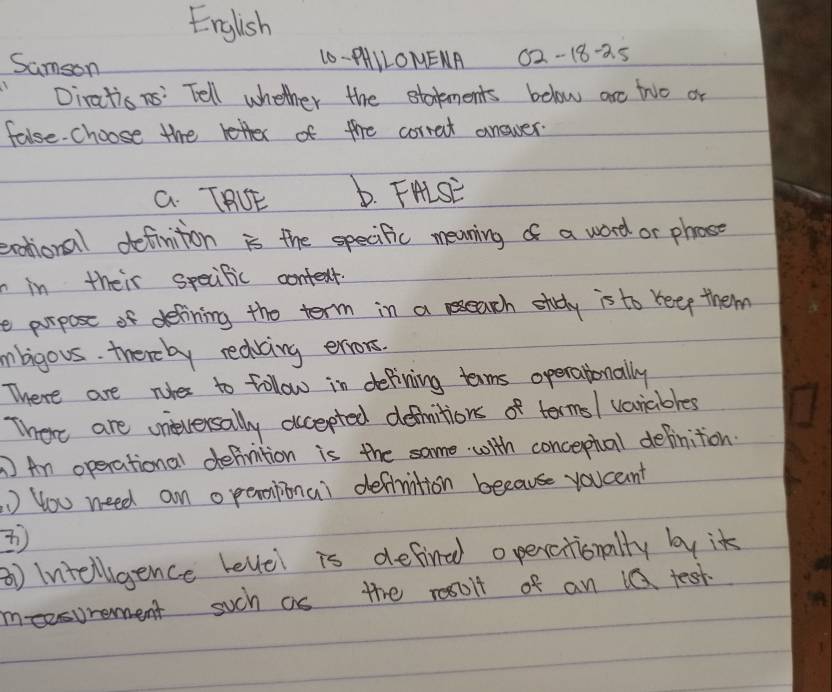 English
Samson 10-PHILOMENA 02-18-25
Directions: Tell whether the statements below are true or
false. Choose the letter of the correct answer.
a. TRUE b. FALSE
erational definition is the specific meaning of a word or phrase
in their specific context.
e purpose of defining the term in a research study is to keep them
mbigous. thereby reducing errors.
There are rules to follow in defining terms operationally
There are unieversally accepted definitions of terms/variables
) An operational definition is the same with conceptual definition.
.) You need an operational definition because you cant
7)
8) Intelligence level is defined operationally by its
measurement such as the result of an IQ test.